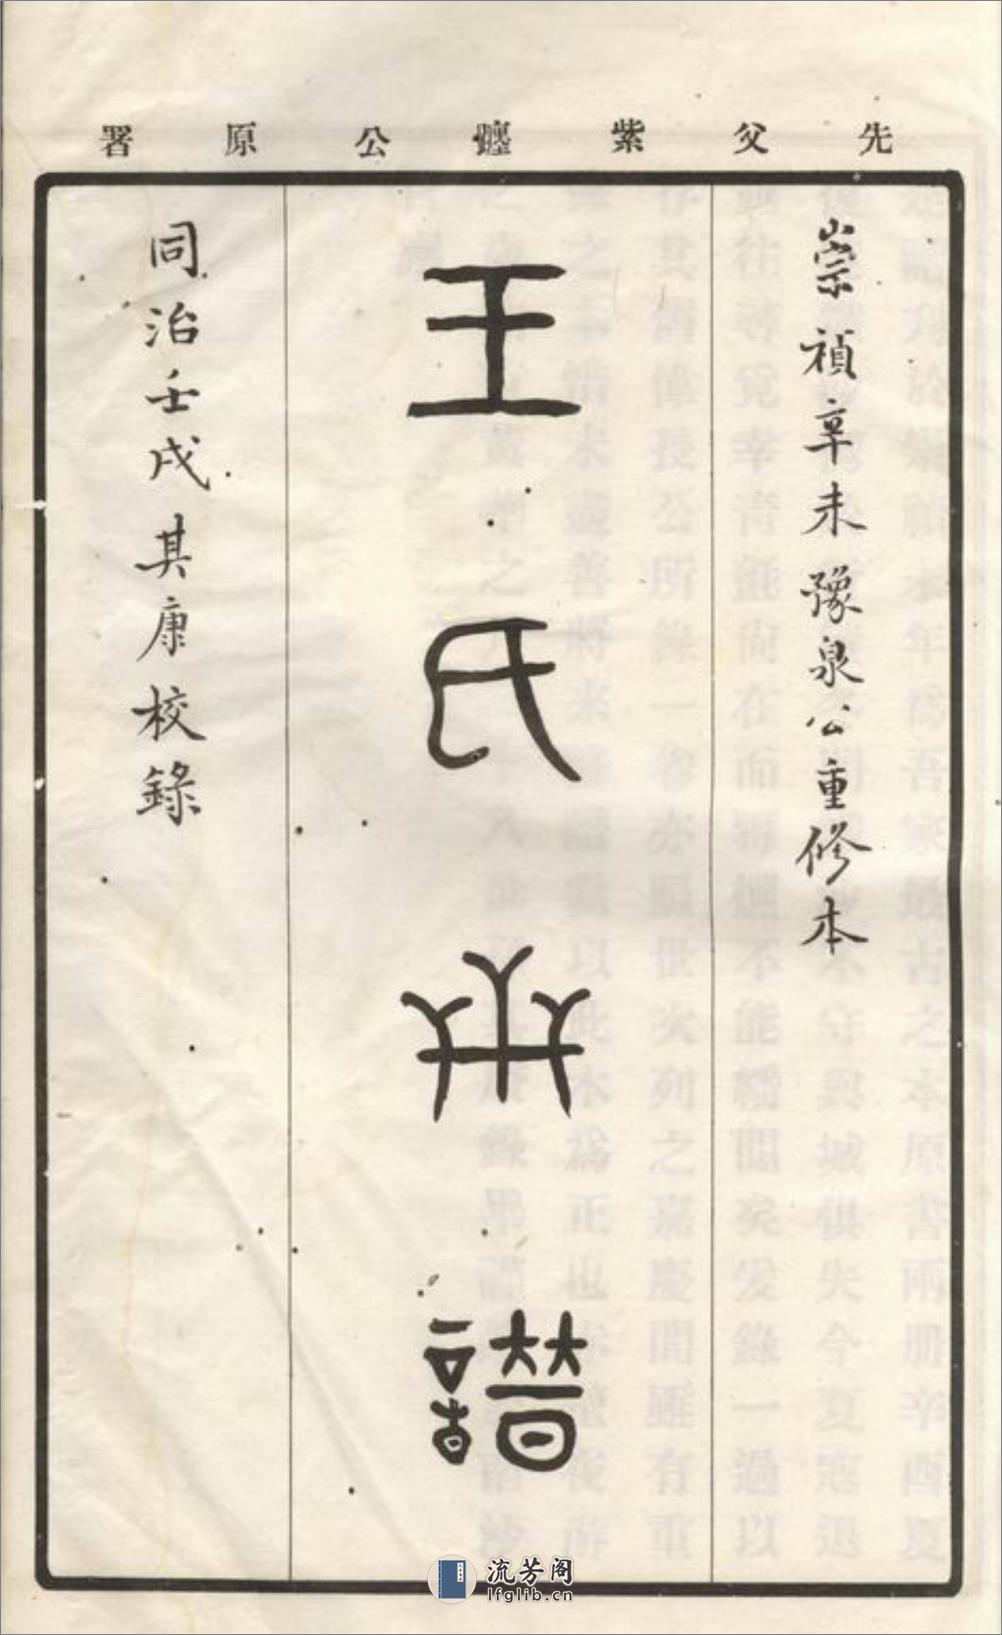 先父紫躔公原署
崇禎辛未豫泉公重修本
王氏世譜
同治壬戌其康校錄
流芳阁
lfglib.cn